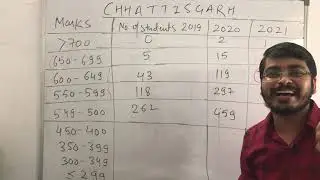 CHHATTISGARH
Marks No of students 2019 2020 2021
>700 0 2
650-699 5 15
600-649 43 119
550-599 118 297
549-500 262 459
450-400
350-399
300-349
≤299